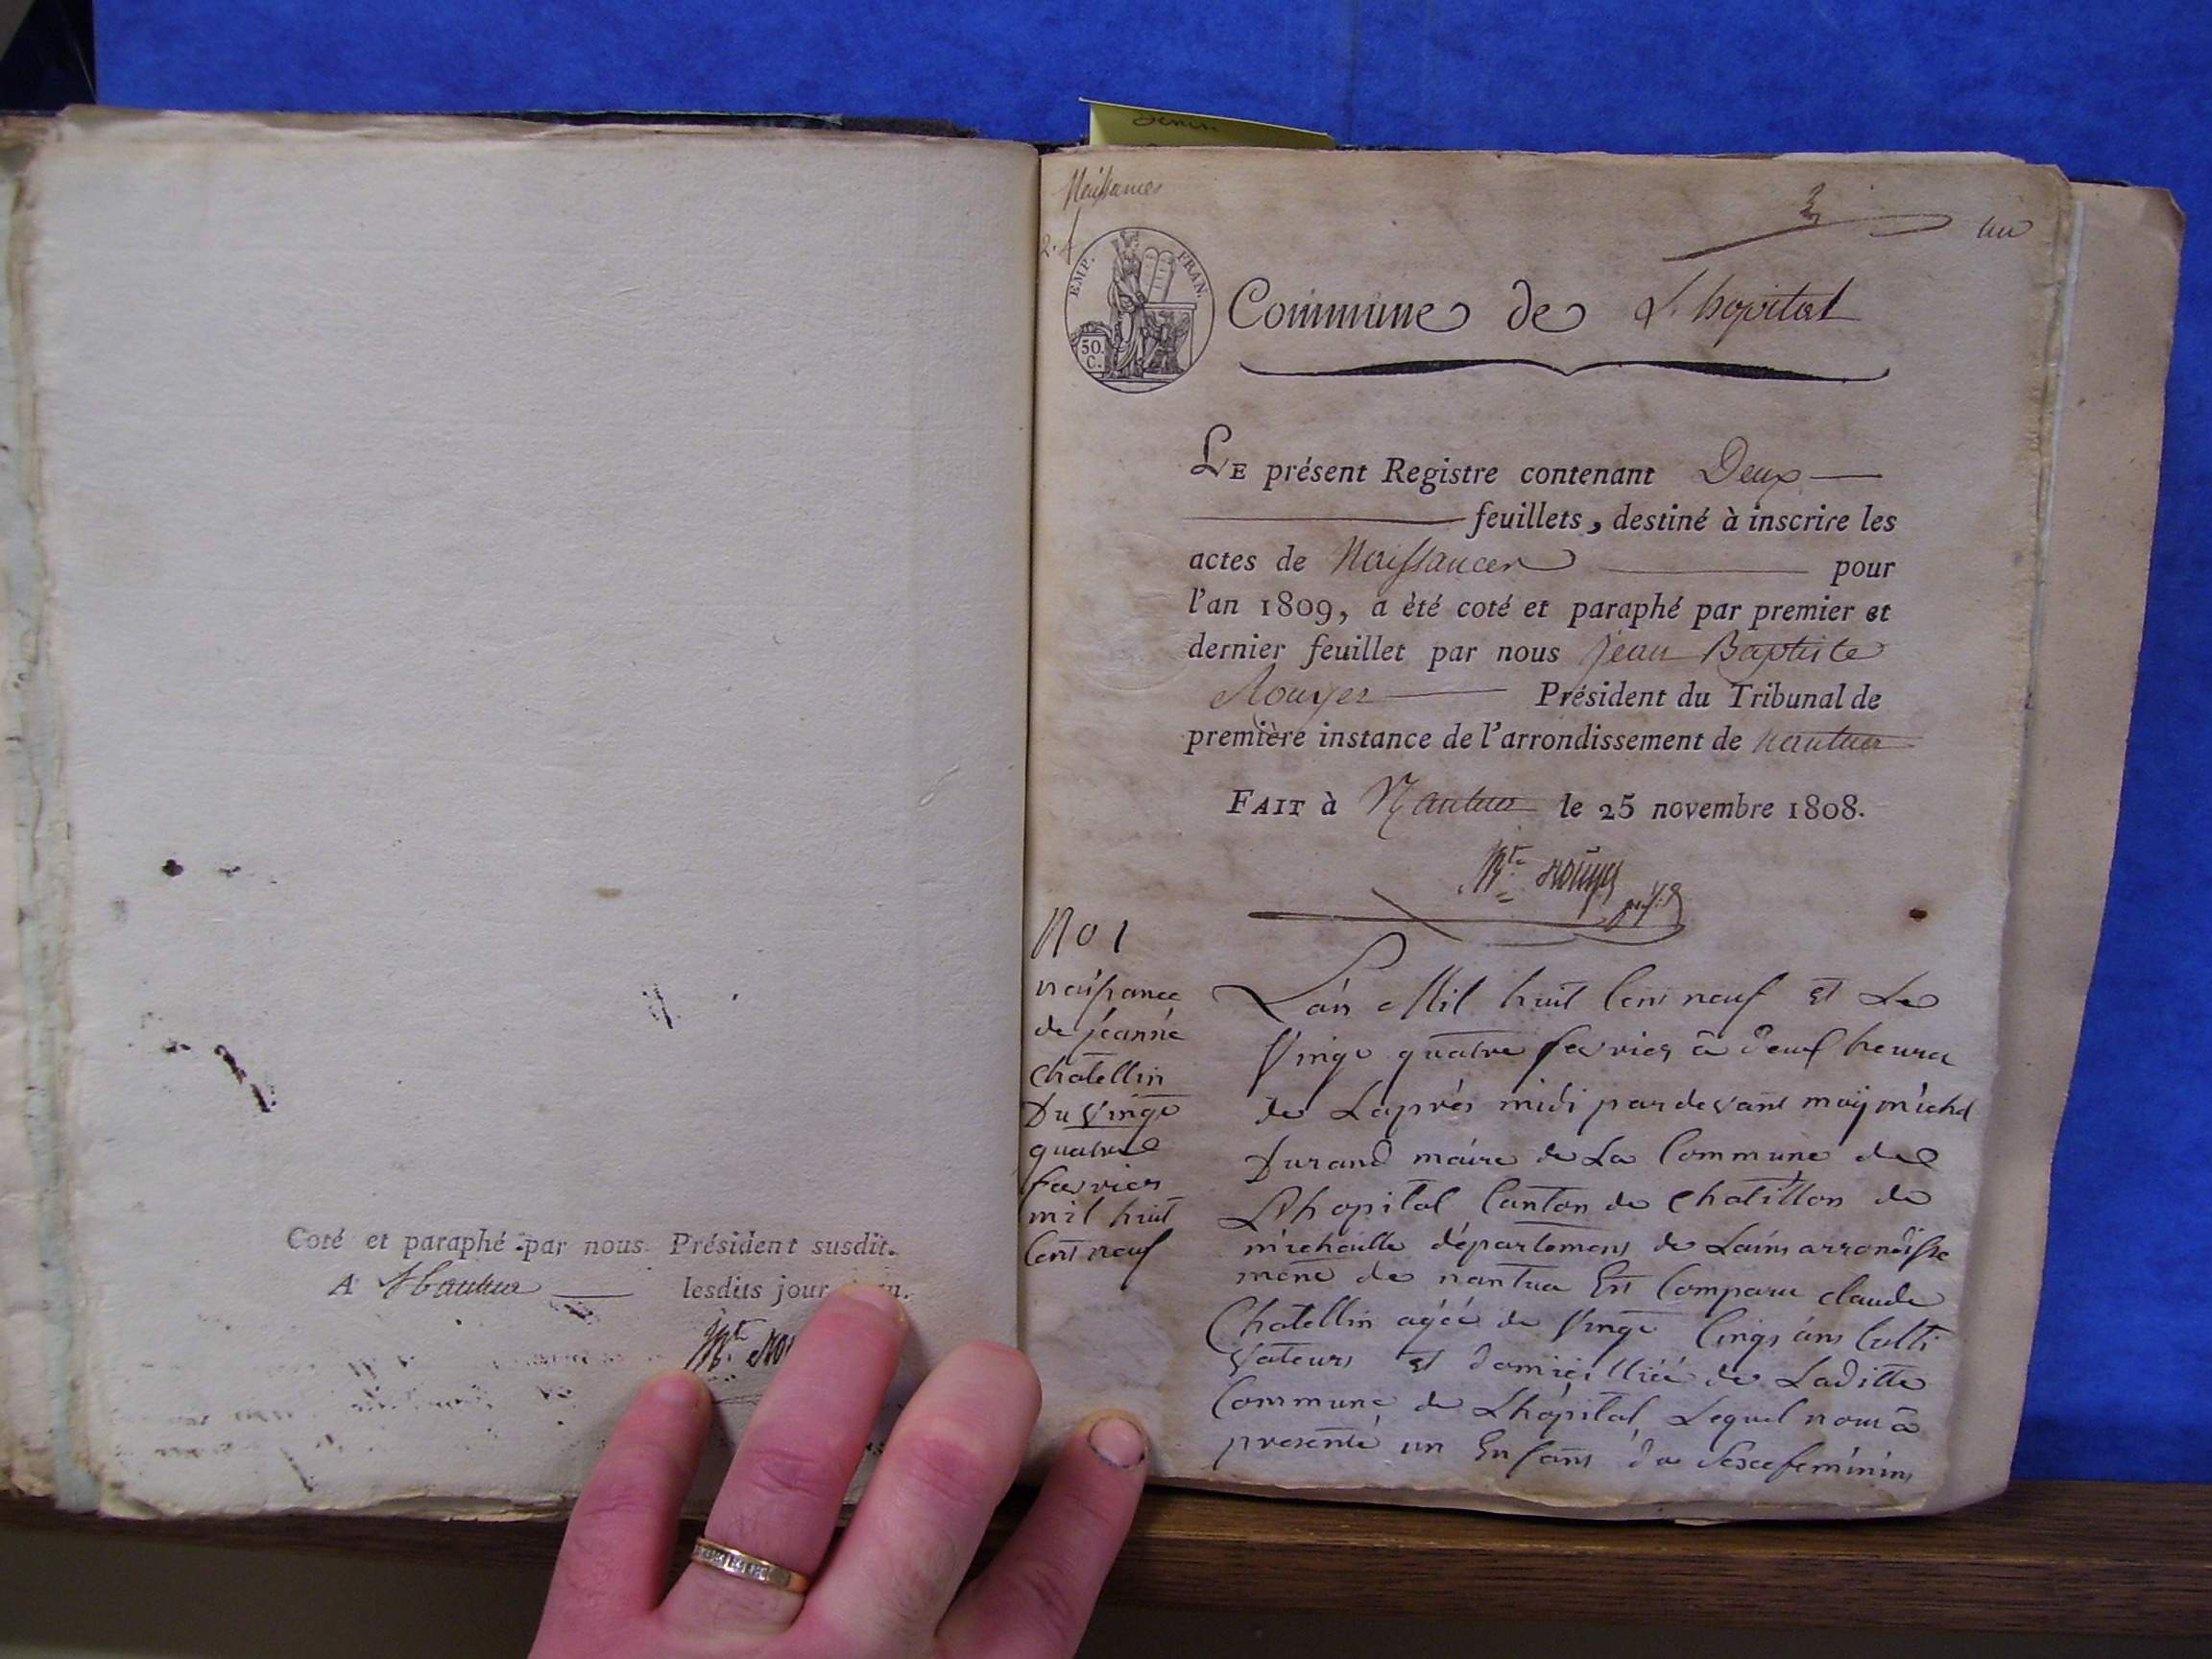 Coté et paraphé par nous Président susdit.
A Nantua lesdits jour
Bte
Naissances
2. f
un
EMP. FRAN.
50. C.
Commune de L'hopital
LE présent Registre contenant Deux
feuillets, destiné à inscrire les
actes de Naissances pour
l'an 1809, a été coté et paraphé par premier et
dernier feuillet par nous Jean Baptiste
Rouyer Président du Tribunal de
première instance de l'arrondissement de nantua
FAIT à Nantua le 25 novembre 1808.
Bte rouyer
No 1
naissance
de jeanne
chatellin
Du Vingt
quatre
fevrier
mil huit
Cent neuf
L'an Mil huit Cent neuf et Le
Vingt quatre fevrier à deux heures
de Laprès midi pardevant moy michel
Durand maire de La Commune de
Lhopital Canton de Chatillon de
michaille département de Lain arrondisse
ment de nantua Est Comparu claude
Chatellin agéé de Vingt Cinqs ans Culti
vateurs et domicilliéé de Laditte
Commune de Lhópital Lequel nous à
présenté un Enfant du Sexe feminin